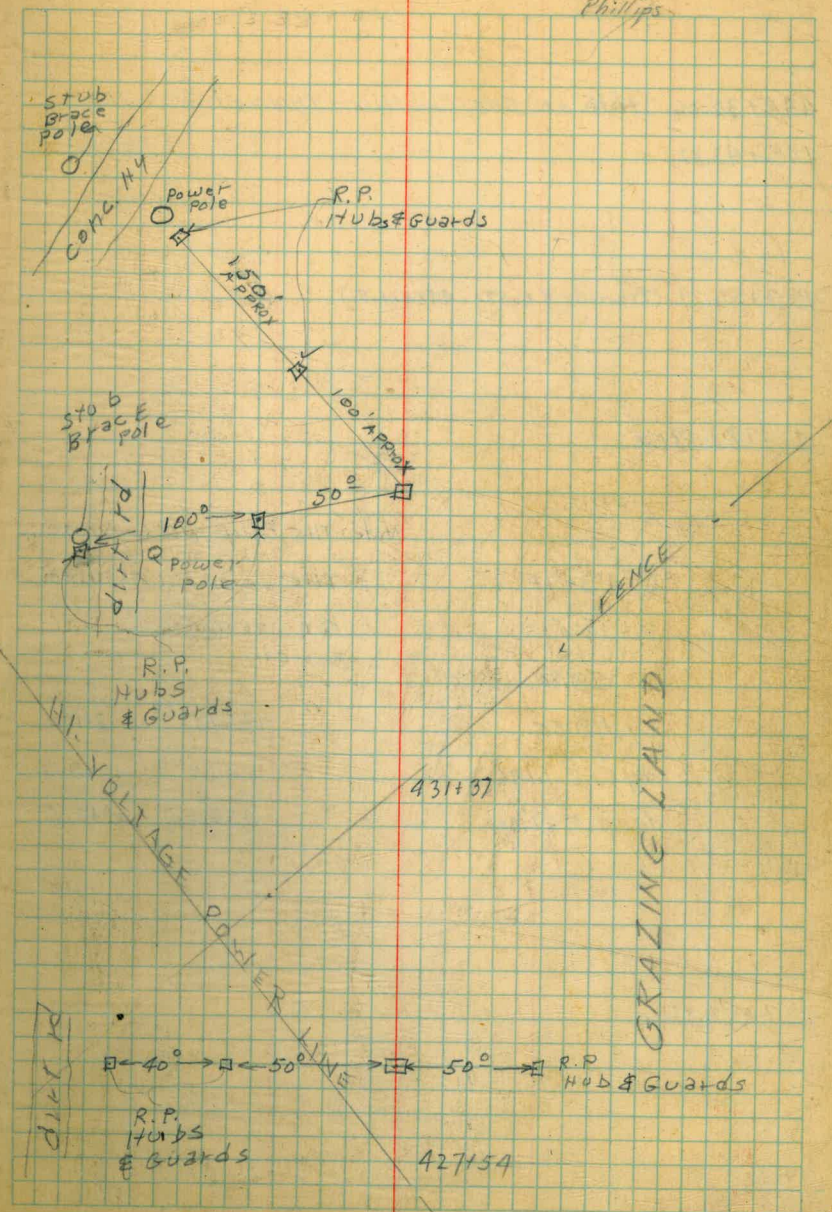 Phillips
Stub
Brace
pole
Conc. H4
power
pole
R.P.
Hubs & Guards
150'
APPROX
100' APPROX
Stub
BracE
pole
dirt rd
100°
50°
power
pole
R.P.
Hubs
& Guards
FENCE
GRAZING LAND
431+37
HI-VOLTAGE POWER LINE
dirt rd
40°
50°
50°
R.P.
Hub & Guards
R.P.
Hubs
& Guards
427+54